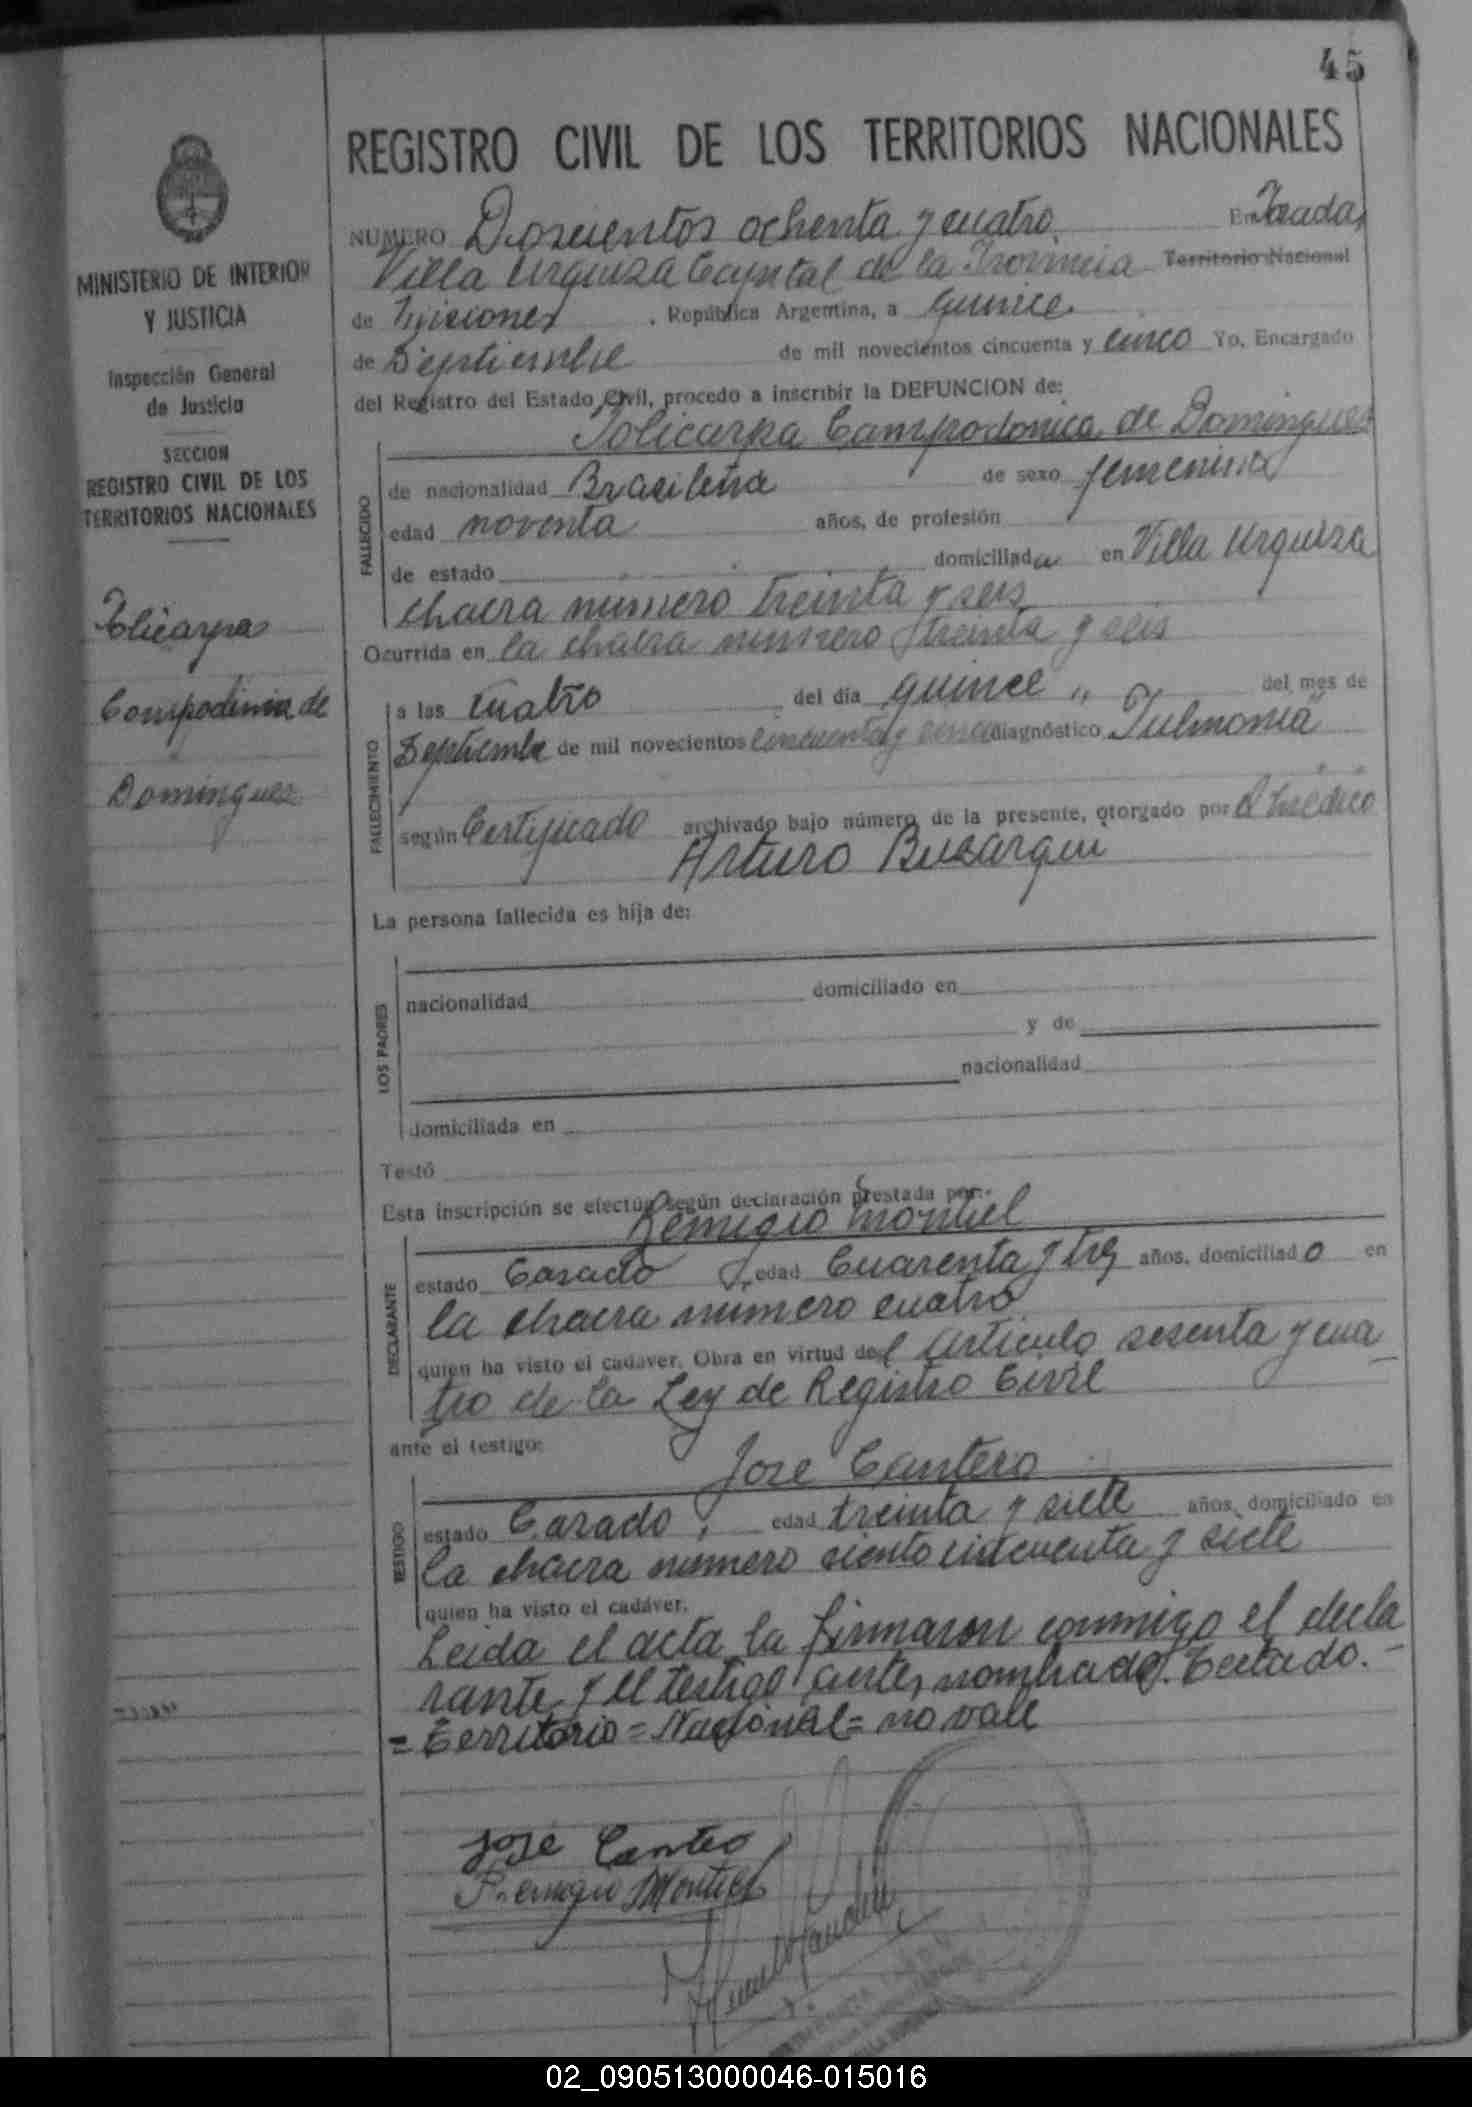 45
REGISTRO CIVIL DE LOS TERRITORIOS NACIONALES
MINISTERIO DE INTERIOR
Y JUSTICIA
Inspección General
de Justicia
SECCION
REGISTRO CIVIL DE LOS
TERRITORIOS NACIONALES
Policarpa
Campodonica de
Dominguez
NUMERO Doscientos ochenta y cuatro En Posadas
Villa Urquiza Capital de la Provincia Territorio Nacional
de Misiones, República Argentina, a quince
de Septiembre de mil novecientos cincuenta y cinco Yo, Encargado
del Registro del Estado Civil, procedo a inscribir la DEFUNCION de:
Policarpa Campodonica de Dominguez
FALLECIDO
de nacionalidad Brasileña de sexo femenino
edad noventa años, de profesión
de estado domiciliada en Villa Urquiza
chacra numero treinta y seis
Ocurrida en la chacra numero treinta y seis
FALLECIMIENTO
a las cuatro del día quince " del mes de
Septiembre de mil novecientos cincuenta y cinco diagnóstico Pulmonia
según Certificado archivado bajo número de la presente, otorgado por el médico
Arturo
La persona fallecida es hija de:
LOS PADRES
nacionalidad domiciliado en
y de
nacionalidad
domiciliada en
Testó
Esta inscripción se efectúa según declaración prestada por:
Remigio Montiel
DECLARANTE
estado Casado, edad Cuarenta y tres años, domiciliado en
la chacra numero cuatro
quien ha visto el cadaver. Obra en virtud del articulo sesenta y cua
tro de la Ley de Registro Civil
ante el testigo:
Jose Cantero
TESTIGO
estado Casado, edad treinta y siete años, domiciliado en
la chacra numero siento cincuenta y siete
quien ha visto el cadáver.
Leida el acta la firmaron conmigo el decla
rante y el testigo antes nombrado. Testado.-
= Territorio = Nacional = no vale
José Cantero
Remigio Montiel
02_090513000046-015016